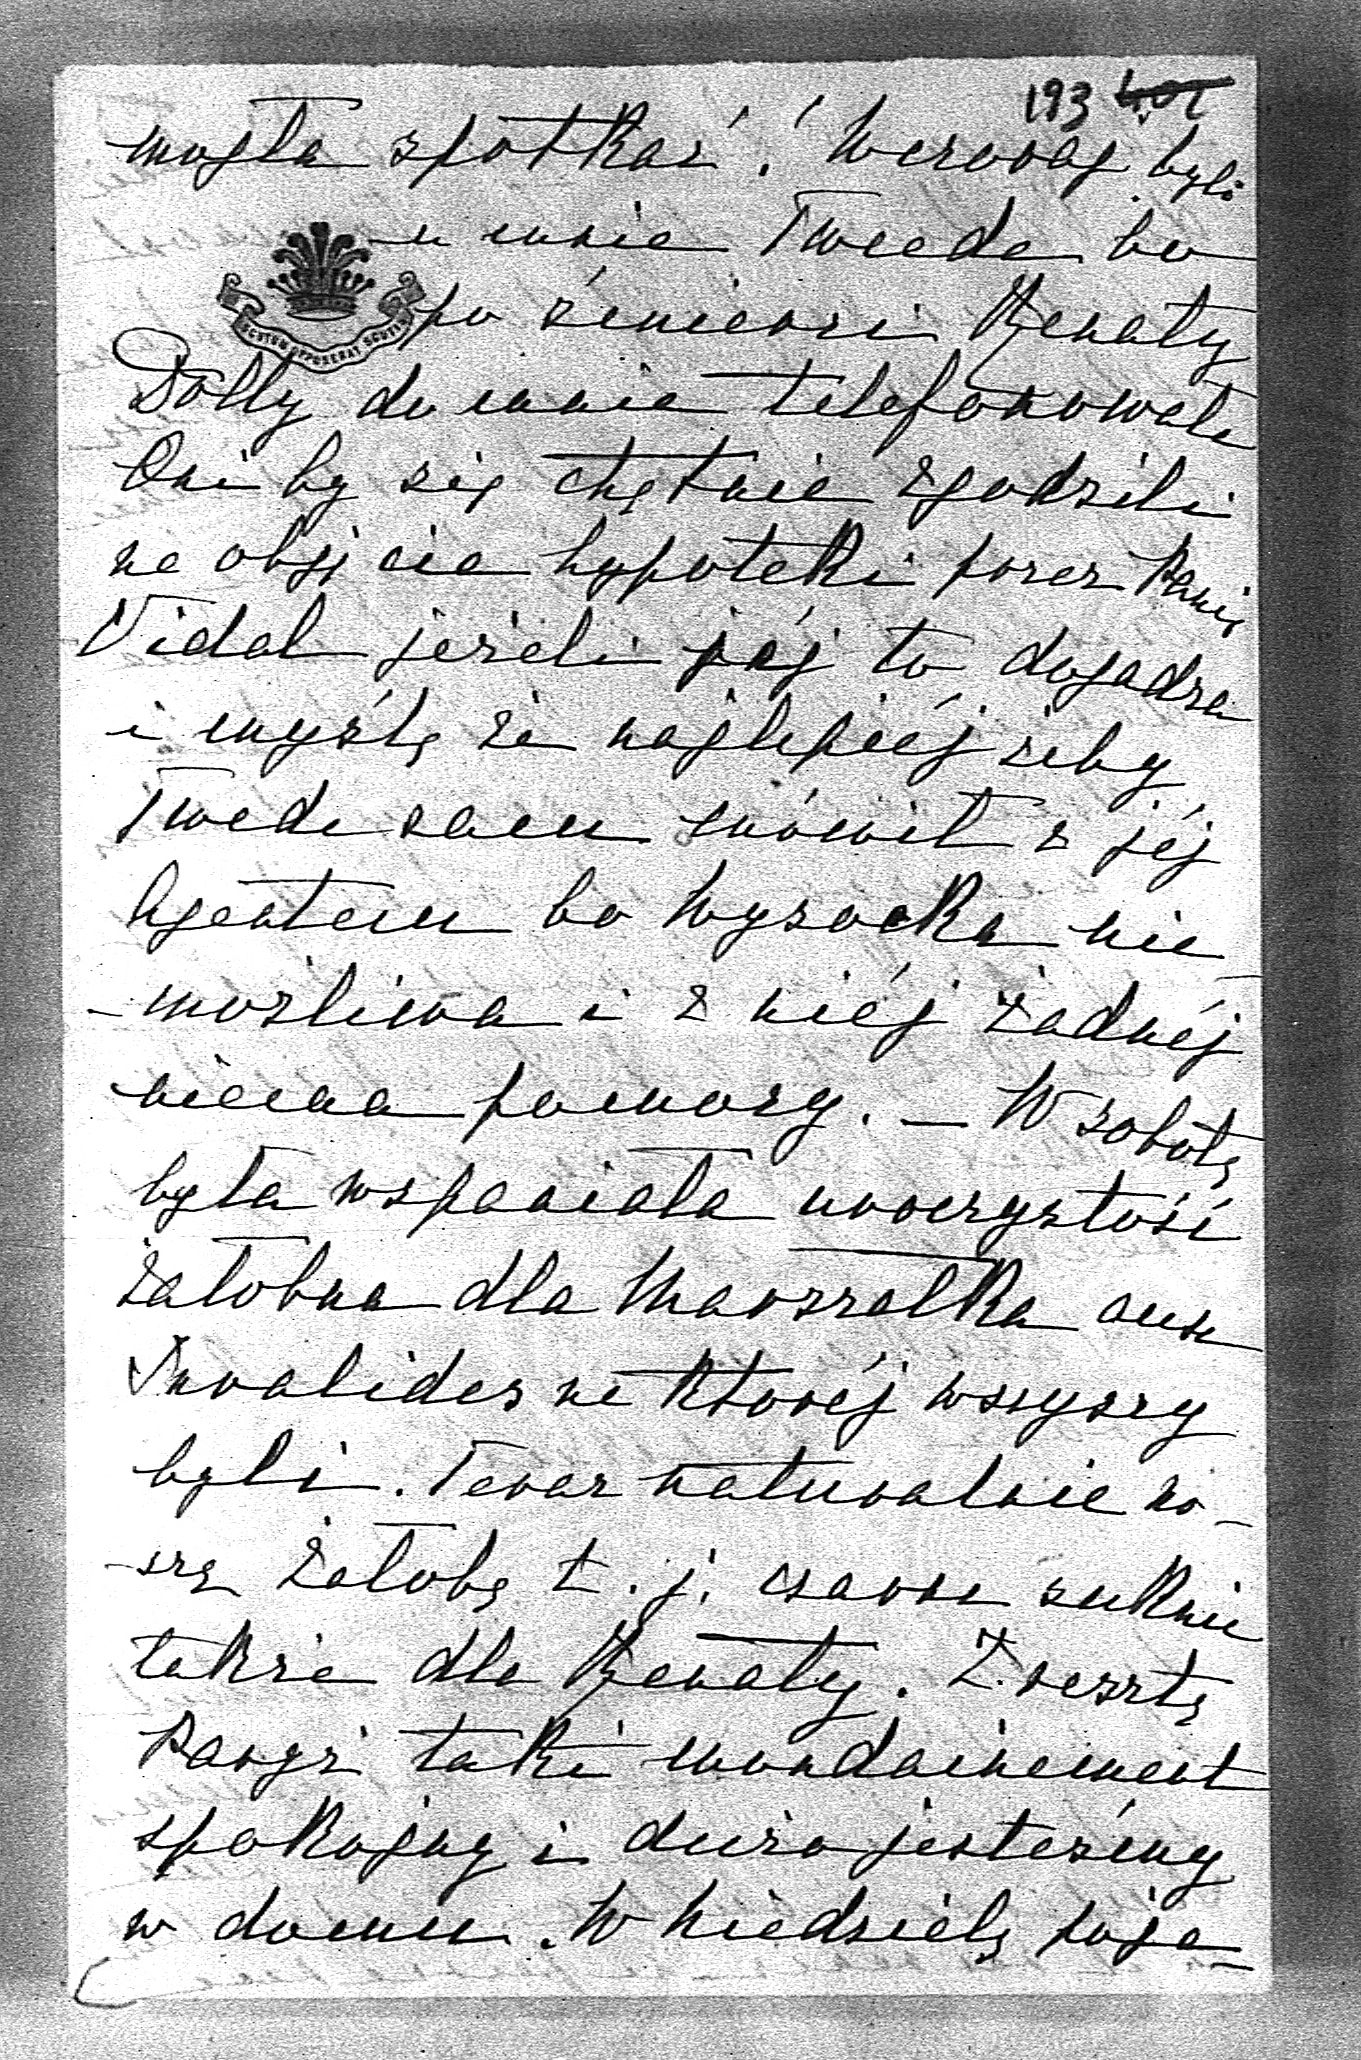 193
mogła spotkać! Wczoraj byli
u mnie Tweede bo
SCUTUM OPPONEBAT SCUTIS
po śmierci Renaty
Dolly do mnie telefonowała
Oni by się chętnie zgodzili
na objęcie hypoteki przez Panią
Vidal jeżeli jéj to dogadza
i myślę że najlepiéj żeby
Tweede sam mówił z jéj
Agentem bo Wysocka nie
-możliwa i z niéj żadnéj
niema pomocy. — W sobotę
była wspaniała uroczystość
żałobna dla Marszałka aux
Invalides na któréj wszyscy
byli. Teraz naturalnie no-
-szę żałobę t. j. czarne suknie
także dla Renaty. Zresztą
Paryż taki mondainement
spokojny i dużo jesteśmy
w domu. W Niedzielę poje-